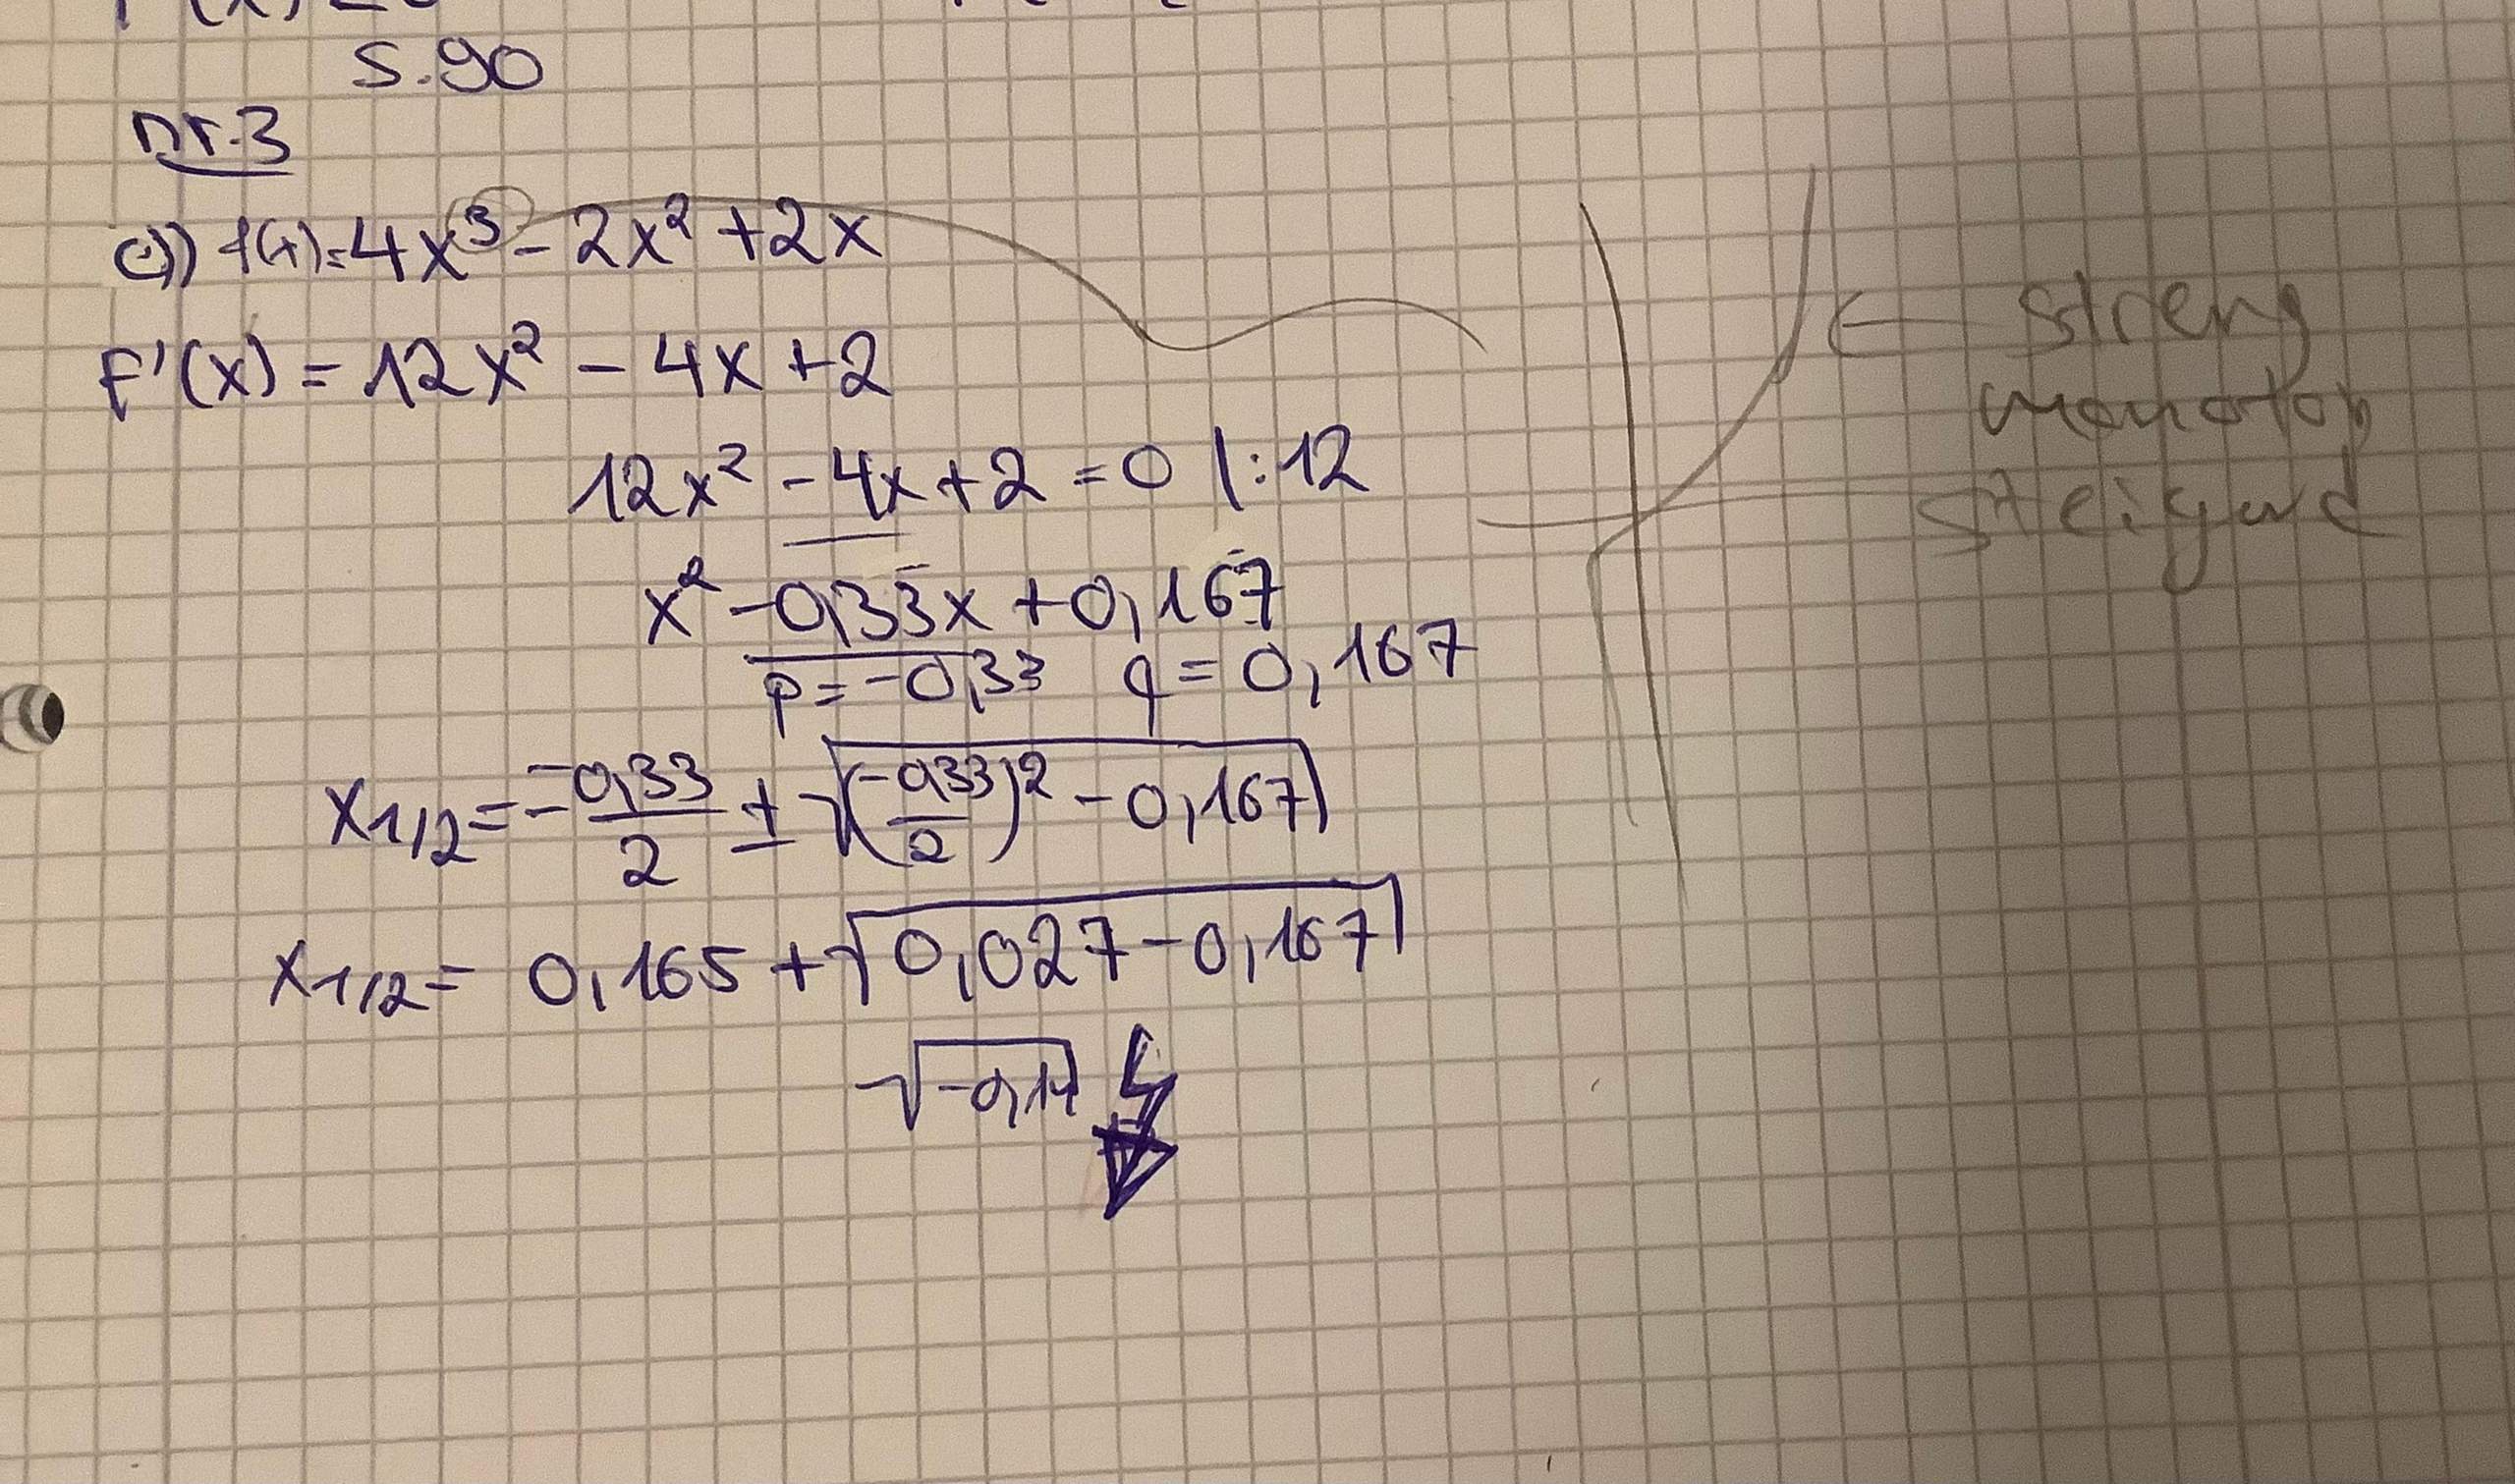 S.90
Nr.3
c) f(x)=4x³-2x²+2x
F'(x) = 12x² - 4x +2
12x² - 4x +2 = 0 |:12
x² -0,33x +0,167
p=-0,33 q=0,167
x1/2=-\frac{-0,33}{2} ± √((\frac{-0,33}{2})² -0,167)
x1/2= 0,165 +√(0,027-0,167)
√(-0,14)
streng
monoton
steigend